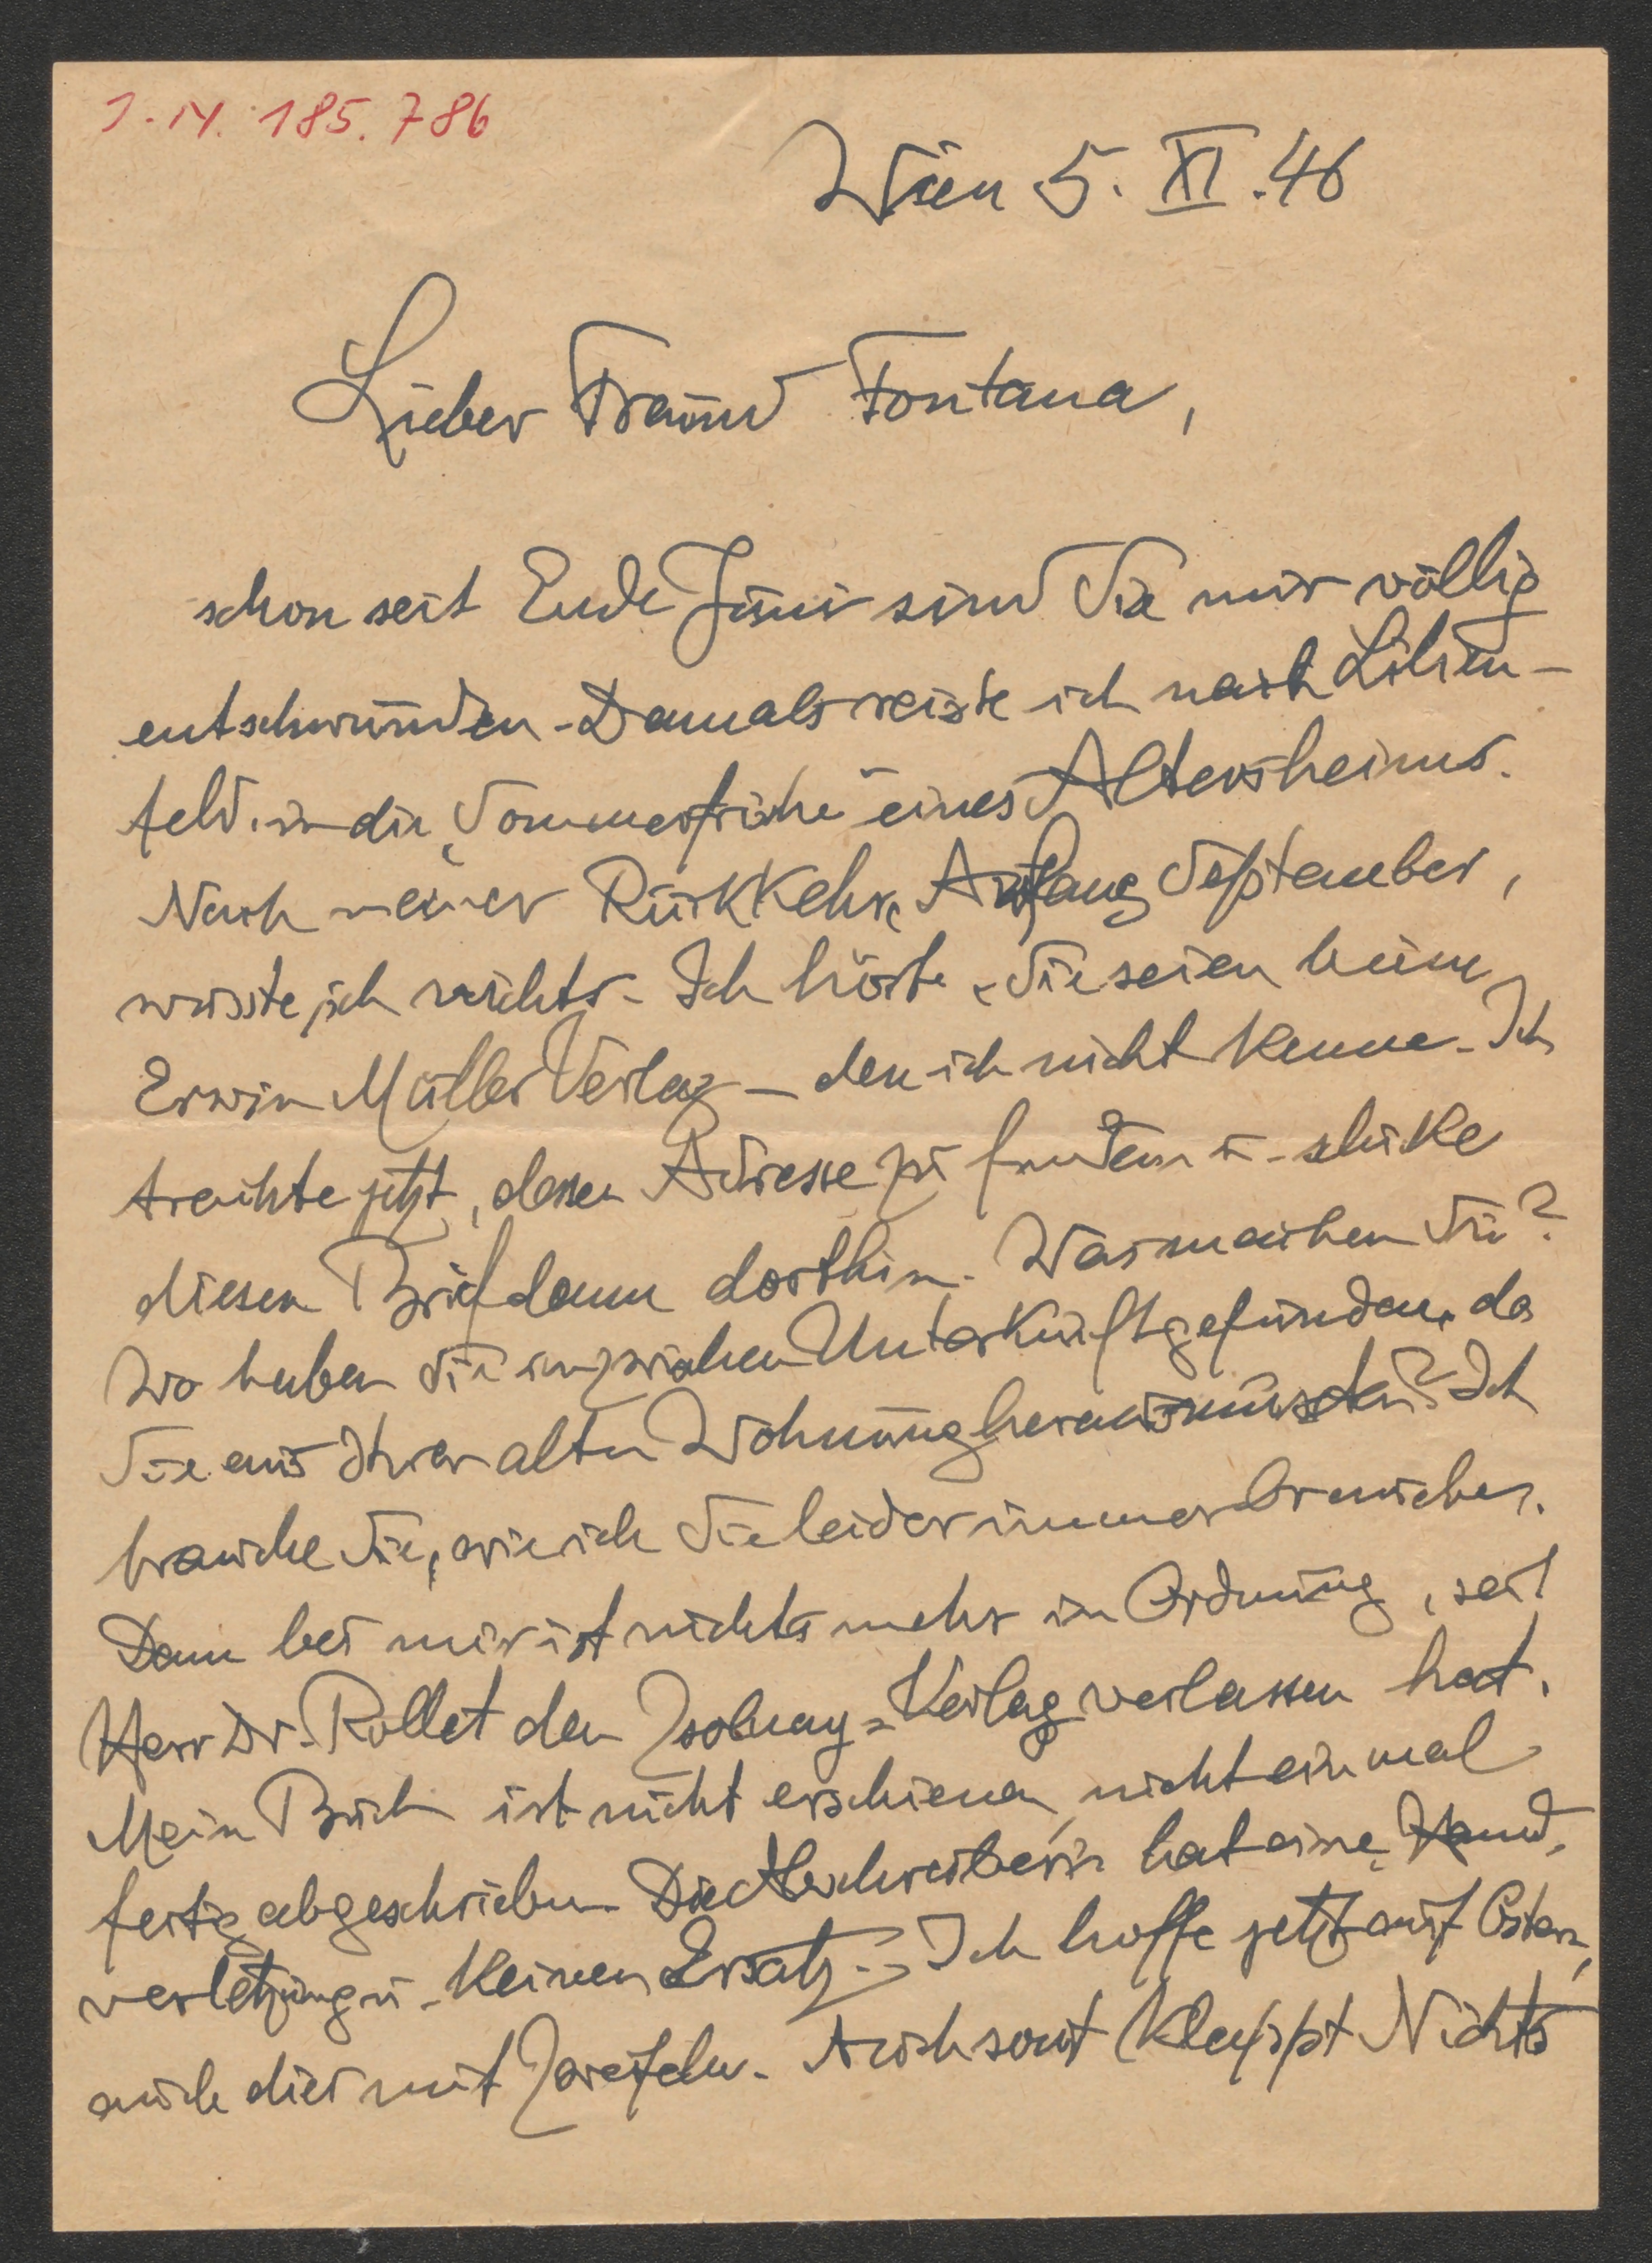 I. N. 185.786
Wien 5. XI. 46
Lieber Freund Fontana,
schon seit Ende Juni sind Sie mir völlig
entschwunden. Damals reiste ich nach Lilien-
feld in die „Sommerfrische" eines Altersheims.
Nach meiner Rückkehr, Anfang September,
wusste ich nichts. Ich hörte, Sie seien beim
Erwin Müller Verlag – den ich nicht kenne. Ich
trachte jetzt, dessen Adresse zu finden u. schicke
diesen Brief dann dorthin. Was machen Sie?
Wo haben Sie inzwischen Unterkunft gefunden, da
Sie aus Ihrer alten Wohnung heraus müssten? Ich
brauche Sie, wie ich Sie leider immer brauche.
Denn bei mir ist nichts mehr in Ordnung, seit
Herr Dr. Rollet den Zsolnay-Verlag verlassen hat.
Mein Buch ist nicht erschienen, nicht einmal
fertig abgeschrieben. Die Abschreiberin hat eine Hand-
verletzung u. keinen Ersatz. – Ich hoffe jetzt auf Ostern,
auch dies mit Zweifeln. Auch sonst klappt Nichts